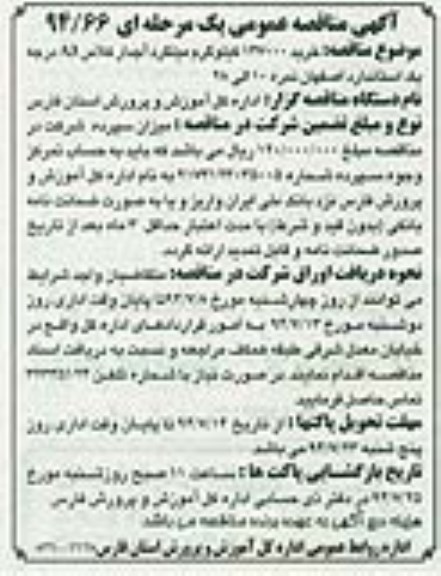 آگهی مناقصه عمومی یک مرحله ای ۹۴/۶۶
موضوع مناقصه: خرید ۱۳۷۰۰۰ کیلوگرم میلگرد آجدار کلاس A3 درجه
یک استاندارد اصفهان نمره ۱۰ الی ۲۸
نام دستگاه مناقصه گزار: اداره کل آموزش و پرورش استان فارس
نوع و مبلغ تضمین شرکت در مناقصه: میزان سپرده شرکت در
مناقصه مبلغ ریال می باشد که باید به حساب تمرکز
وجوه سپرده شماره به نام اداره کل آموزش و
پرورش فارس نزد بانک ملی ایران واریز و یا به صورت ضمانت نامه
بانکی (بدون قید و شرط) با مدت اعتبار حداقل ۳ ماه بعد از تاریخ
صدور ضمانت نامه و قابل تمدید ارائه گردد.
نحوه دریافت اوراق شرکت در مناقصه: متقاضیان واجد شرایط
می توانند از روز چهارشنبه مورخ ۹۴/۷/۸ تا پایان وقت اداری روز
دوشنبه مورخ ۹۴/۷/۱۳ به امور قراردادهای اداره کل واقع در
خیابان معدل شرقی طبقه همکف مراجعه و نسبت به دریافت اسناد
مناقصه اقدام نمایند در صورت نیاز با شماره تلفن
تماس حاصل فرمایید
مهلت تحویل پاکتها: از تاریخ ۹۴/۷/۱۴ تا پایان وقت اداری روز
پنج شنبه ۹۴/۷/۲۳ می باشد
تاریخ بازگشایی پاکت ها: ساعت ۱۱ صبح روز شنبه مورخ
۹۴/۷/۲۵ در دفتر ذی حسابی اداره کل آموزش و پرورش فارس
هزینه درج آگهی به عهده برنده مناقصه می باشد
اداره روابط عمومی اداره کل آموزش و پرورش استان فارس